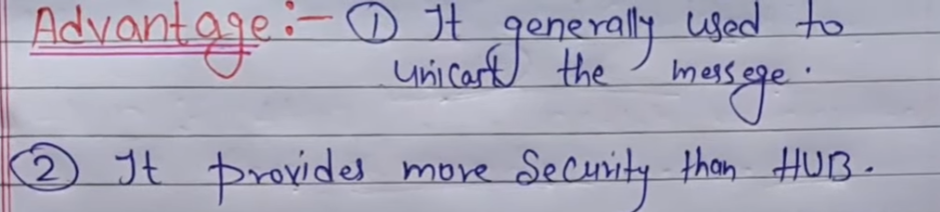 Advantage :- ① It generally used to
unicast the messege.
② It provides more Security than HUB.